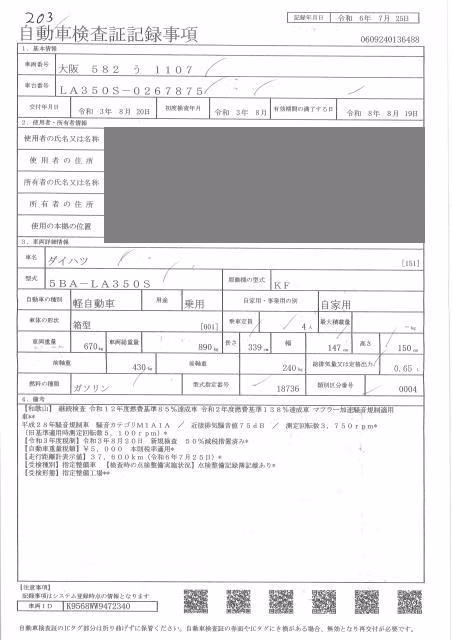 203
記録年月日 令和 6年 7月 25日
自動車検査証記録事項
0609240136488
1．基本情報
車両番号 大阪 582 う 1107
車台番号 LA350S-0267875
交付年月日 令和 3年 8月 20日 初度検査年月 令和 3年 8月 有効期間の満了する日 令和 8年 8月 19日
2．使用者・所有者情報
使用者の氏名又は名称
使用者の住所
所有者の氏名又は名称
所有者の住所
使用の本拠の位置
3．車両詳細情報
車名 ダイハツ [151]
型式 5BA-LA350S 原動機の型式 KF
自動車の種別 軽自動車 用途 乗用 自家用・事業用の別 自家用
車体の形状 箱型 [601] 乗車定員 4人 最大積載量 -kg
車両重量 670kg 車両総重量 890kg 長さ 339cm 幅 147cm 高さ 150cm
前軸重 430kg 後軸重 240kg 総排気量又は定格出力 0.65L
燃料の種類 ガソリン 型式指定番号 18736 類別区分番号 0004
4．備考
【和歌山】 継続検査 令和12年度燃費基準85%達成車 令和2年度燃費基準138%達成車 マフラー加速騒音規制適用
車**
平成28年騒音規制車 騒音カテゴリM1A1A ／ 近接排気騒音値75dB ／ 測定回転数3,750rpm**
（旧基準適用時測定回転数5,100rpm）*
【令和3年度規制】令和3年8月20日 新規検査 50%減税措置済み*
【自動車重量税額】￥5,000 本則税率適用*
【走行距離計表示値】37,600km（令和6年7月25日）*
【受検種別】指定整備車 【検査時の点検整備実施状況】点検整備記録簿記載あり*
【受検形態】指定整備工場**
【注意事項】
記録事項はシステム登録時点の情報となります
車両ID K9568WW9472340
自動車検査証のICタグ部分は折り曲げずに保管ください。自動車検査証の券面やICタグにき損がある場合、無効となり再交付が必要です。